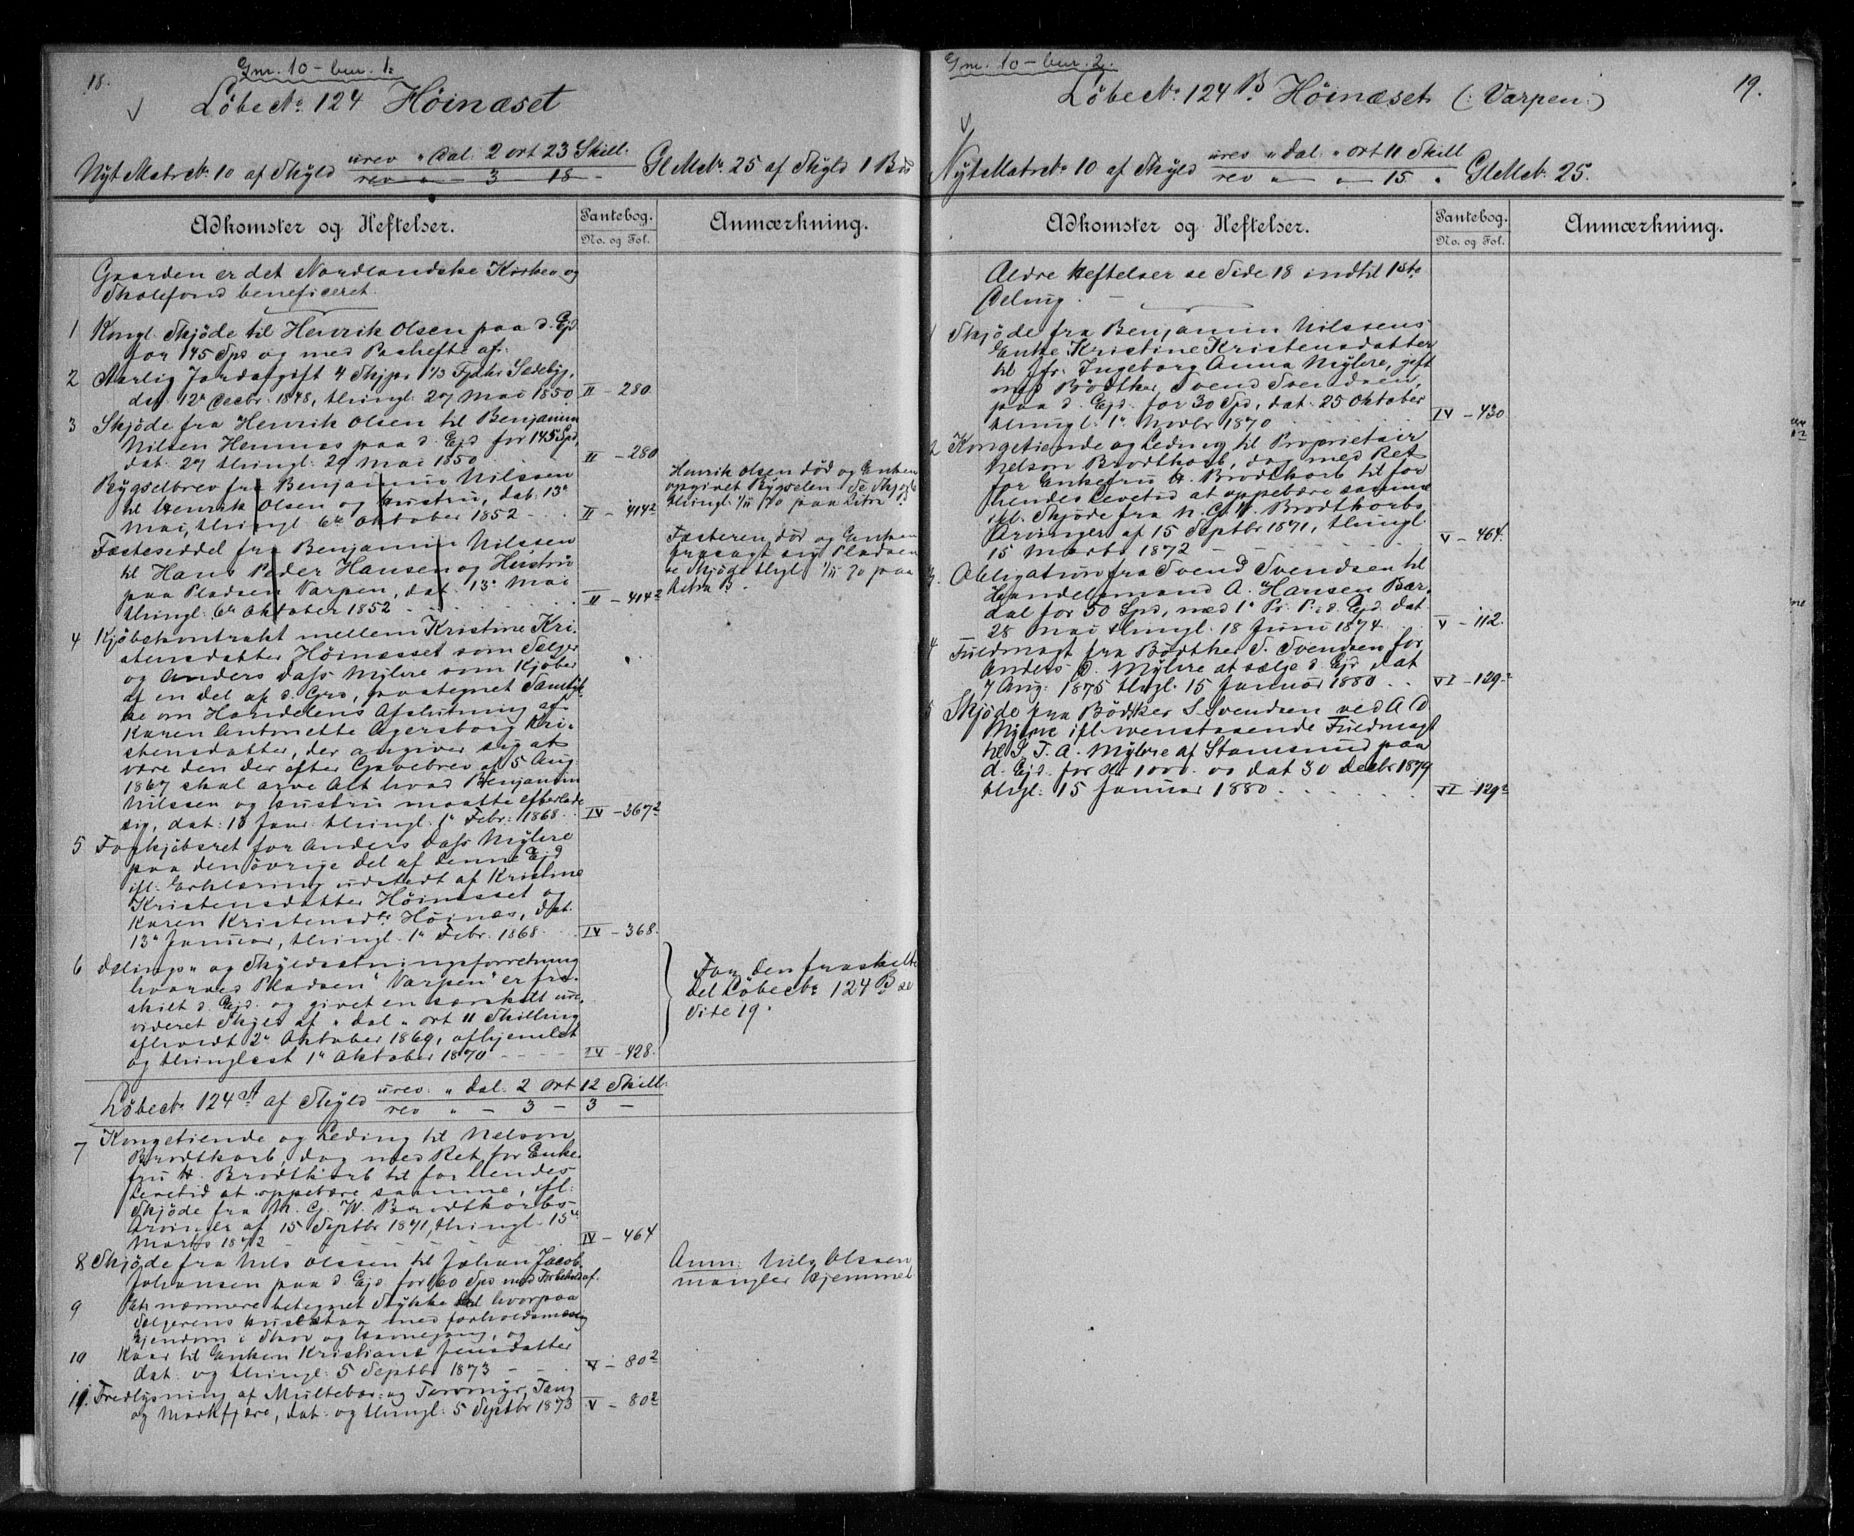 18.
Gnr. 10 - bnr. 1.
Löbe No 124 Höinæset
Nyt Matr No 10 af Skyld urev " Dal. 2 ort 23 Skill. Gl M No 25 af Skyld 1 B
rev " — 3 — 18 —
Adkomster og Heftelser.
Pantebog.
No. og Fol.
Anmærkning.
Gaarden er det Nordlandske Kirke og
Skolefond beneficeret.
1 Kongl. Skjøde til Henrik Olsen paa d. Ejd.
for 145 Spd og med Paahefte af:
2 Aarlig Jordafgift 4 Skjpr 1 1/3 Fjdkr Sædebyg,
dat. 12te Decbr. 1848, thingl. 27 Mai 1850 II - 280
3 Skjøde fra Henrik Olsen til Benjamin
Nilsen Hemnæs paa d. Ejd for 145 Spd,
dat. 27 thingl. 29 Mai 1850 II - 280
Bygselbrev fra Benjamin Nilssen
til Henrik Olsen og Hustru, dat. 13de
Mai, thingl. 6te Oktober 1852 II - 414 2
Henrik Olsen død og Enken
opgivet Bygselen Se Skjøde
thingl. 1/11 70 paa Litra
Fæsteseddel fra Benjamin Nilssen
til Hans Peder Hansen og Hustru
paa Pladsen Varpen, dat. 13de Mai
thingl. 6te Oktober 1852 II - 414 2
Fæsteren død og Enken
frasagt sig Pladsen
se Skjøde thgl. 1/11 70 paa
Litra B.
4 Kjøbekontrakt mellem Kristine Kri-
stensdatter Höinæsset som Sælger
og Anders Dass Mylere som Kjøber
af en Del af d. Grd, paategnet Samtyk-
ke om Handelens Afslutning af
Karen Antonette Agersborg Kri-
stensdatter, der angiver sig at
være den der efter Gavebrev af 5 Aug.
1867 skal arve Alt hvad Benjamin
Nilssen og Hustru maatte efterlade
sig, dat. 13 Janr. thingl. 1ste Febr. 1868 IV - 367 2
5 Forkjøbsret for Anders Dass Mylere
paa den øvrige Del af denne Ejd
ifl. Erklæring udstedt af Kristine
Kristensdatter Höinæsset og
Karen Kristensdtr Höinæs, dat.
13de Januar, thingl. 1ste Febr. 1868 IV - 368.
6 Delings- og Skyldsætningsforretning
hvorved Pladsen "Varpen" er fra-
skilt d. Ejd. og givet en særskilt ure-
videret Skyld af " Dal " ort 11 Skilling
afholdt 2den Oktober 1869, afhjemlet
og thinglæst 1ste Oktober 1870 IV - 428.
For den fraskilte
Del Löbe No 124 B se
Side 19.
Löbe No 124 A af Skyld urev. " Dal. 2 ort 12 Skill.
rev " — 3 — 3 —
7 Kongetiende og Leding til Nelson
Brodtkorb, dog med Ret for Enke-
fru H. Brodtkorb til for hendes
Levetid at oppebære samme, ifl.
Skjøde fra N. C. W. Brodtkorbs
Arvinger af 15 Septbr 1871, thingl. 15de
Marts 1872 IV - 464
8 Skjøde fra Nils Olssen til Johan Jacob
Johansen paa d Ejd for 160 Spd med Forbehold af.
Anm: Nils Olssen
mangler Hjemmel
9 Et nærmere betegnet Stykke Jord hvorpaa
Sælgerens Huse staa med forholdsmæssig
Ejendom i Skov og Havnegang, og
10 Kaar til Enken Kristiane Jensdatter
dat. og thingl. 5 Septbr 1873 V - 80 2
11. Fredlysning af Multebær- og Torvmyr, Tang
og Markfjære, dat. og thingl. 5 Septbr 1873 V - 80 2
19.
Gnr. 10 - bnr. 2.
Löbe No 124 B Höinæset (: Varpen :)
Nyt Matr No 10 af Skyld urev " Dal. " ort 11 Skill Gl M No 25.
rev " — " — 15 "
Adkomster og Heftelser.
Pantebog.
No. og Fol.
Anmærkning.
Ældre Heftelser se Side 18 indtil 1ste
Deling.
1 Skjøde fra Benjamin Nilssens
Enke Kristine Kristensdatter
til Fr. Ingeborg Anna Mylere, gift
med Bödker Svend Svendsen,
paa d. Ejd. for 30 Spd, dat. 25 Oktober
thingl. 1ste Novbr 1870 IV - 430
2 Kongetiende og Leding til Proprietair
Nelson Brodtkorb, dog med Ret
for Enkefru H. Brodtkorb til for
hendes Levetid at oppebære samme
ifl. Skjøde fra N. C. W. Brodtkorbs
Arvinger af 15 Septbr 1871, thingl.
15 Marts 1872 V - 464.
3. Obligation fra Svend Svendsen til
Handelsmand A. Hansen Bær-
dal for 50 Spd, med 1ste Pr. P. i d. Ejd. dat.
28 Mai thingl. 18 Juni 1874 V - 112.
4 Fuldmagt fra Bödker S. Svendsen for
Anders D. Mylere at sælge d. Ejd, dat
7 Aug. 1875 thgl. 15 Januar 1880 VI - 129 2
5 Skjøde fra Bödker S Svendsen ved A D
Mylere ifl. ovenstaaende Fuldmagt
til S. T. A. Mylere af Stamsund paa
d. Ejd. for Kr 1000.00 dat 30 Decbr 1879
thgl. 15 Januar 1880 VI - 129 2